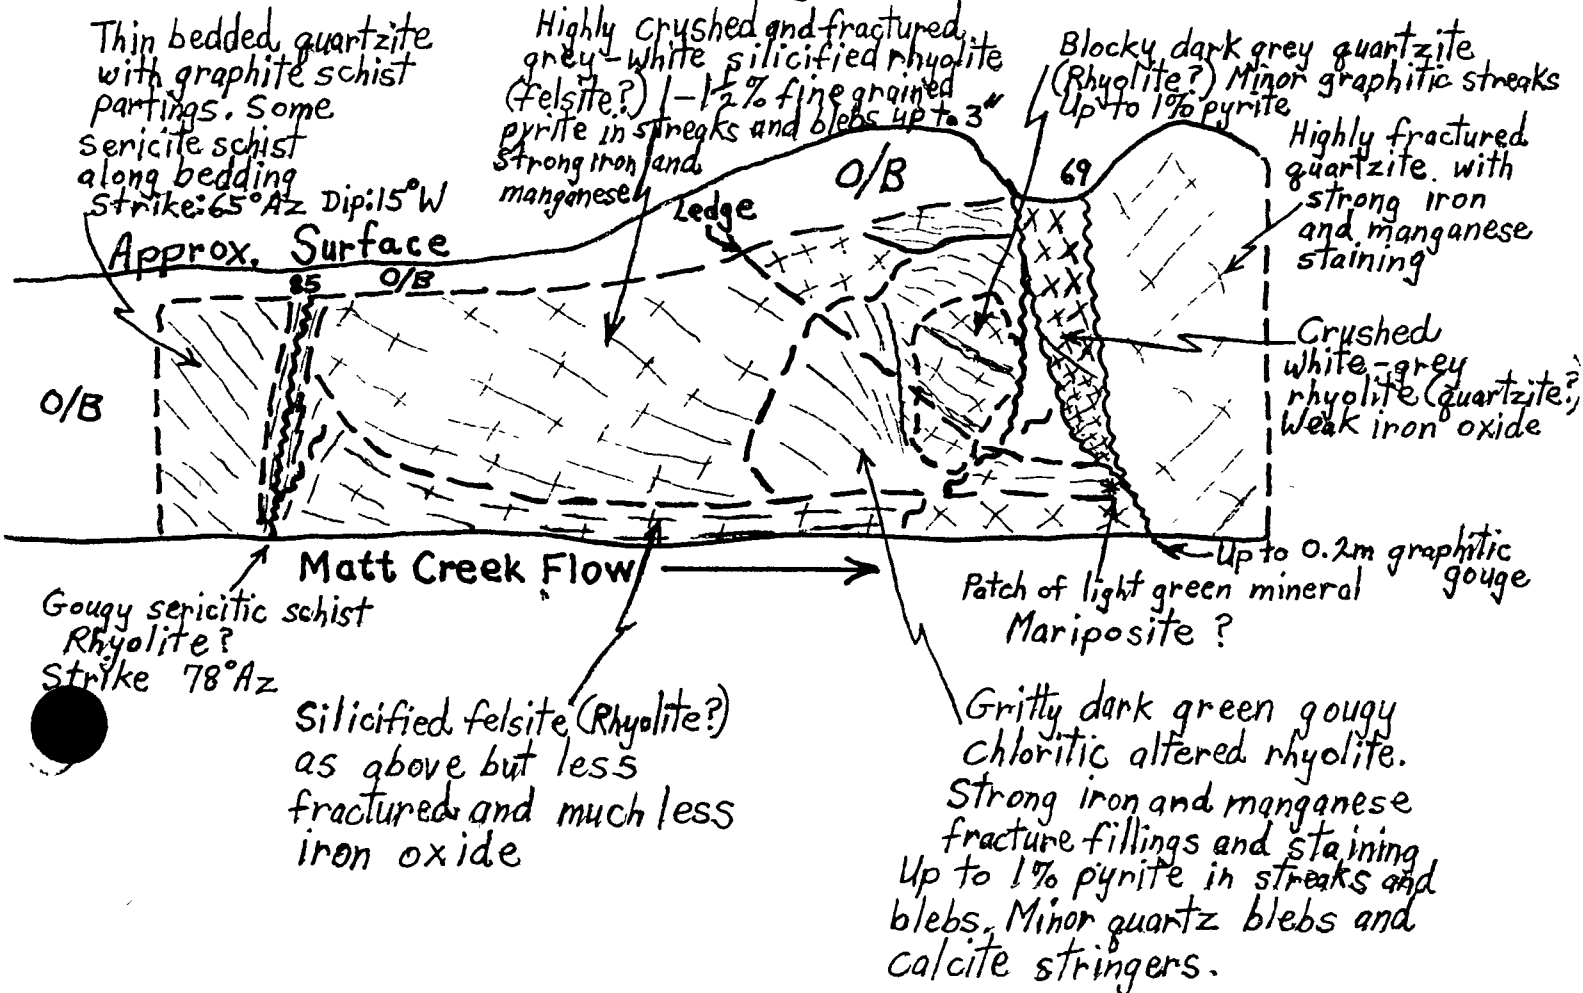 Thin bedded quartzite
with graphite schist
partings. Some
sericite schist
along bedding
Strike: 65°Az Dip: 15°W
Highly crushed and fractured
grey-white silicified rhyolite
(felsite?) 1-1½% fine grained
pyrite in streaks and blebs up to 3"
Strong iron and
manganese
Blocky dark grey quartzite
(Rhyolite?) Minor graphitic streaks
Up to 1% pyrite
Highly fractured
quartzite. with
strong iron
and manganese
staining
O/B
69
Ledge
Approx. Surface
85
O/B
O/B
Crushed
white-grey
rhyolite (quartzite?)
Weak iron oxide
Matt Creek Flow
Up to 0.2m graphitic
gouge
Patch of light green mineral
Mariposite ?
Gougy sericitic schist
Rhyolite?
Strike 78°Az
Silicified felsite (Rhyolite?)
as above but less
fractured and much less
iron oxide
Gritty dark green gougy
Chloritic altered rhyolite.
Strong iron and manganese
fracture fillings and staining
Up to 1% pyrite in streaks and
blebs. Minor quartz blebs and
calcite stringers.